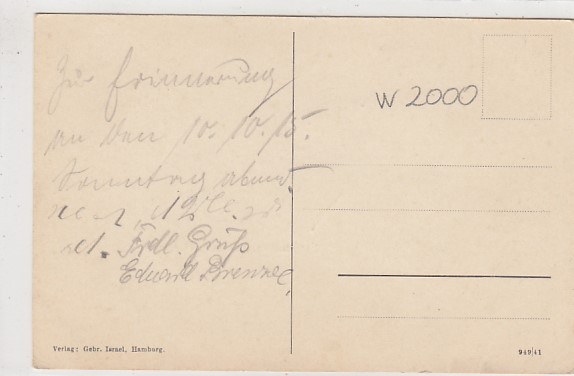 Zur Erinnerung
an den 10. 10. 15.
Sonntag abend
Frdl. Gruß
Eduard
W 2000
Verlag: Gebr. Israel, Hamburg.
949/41